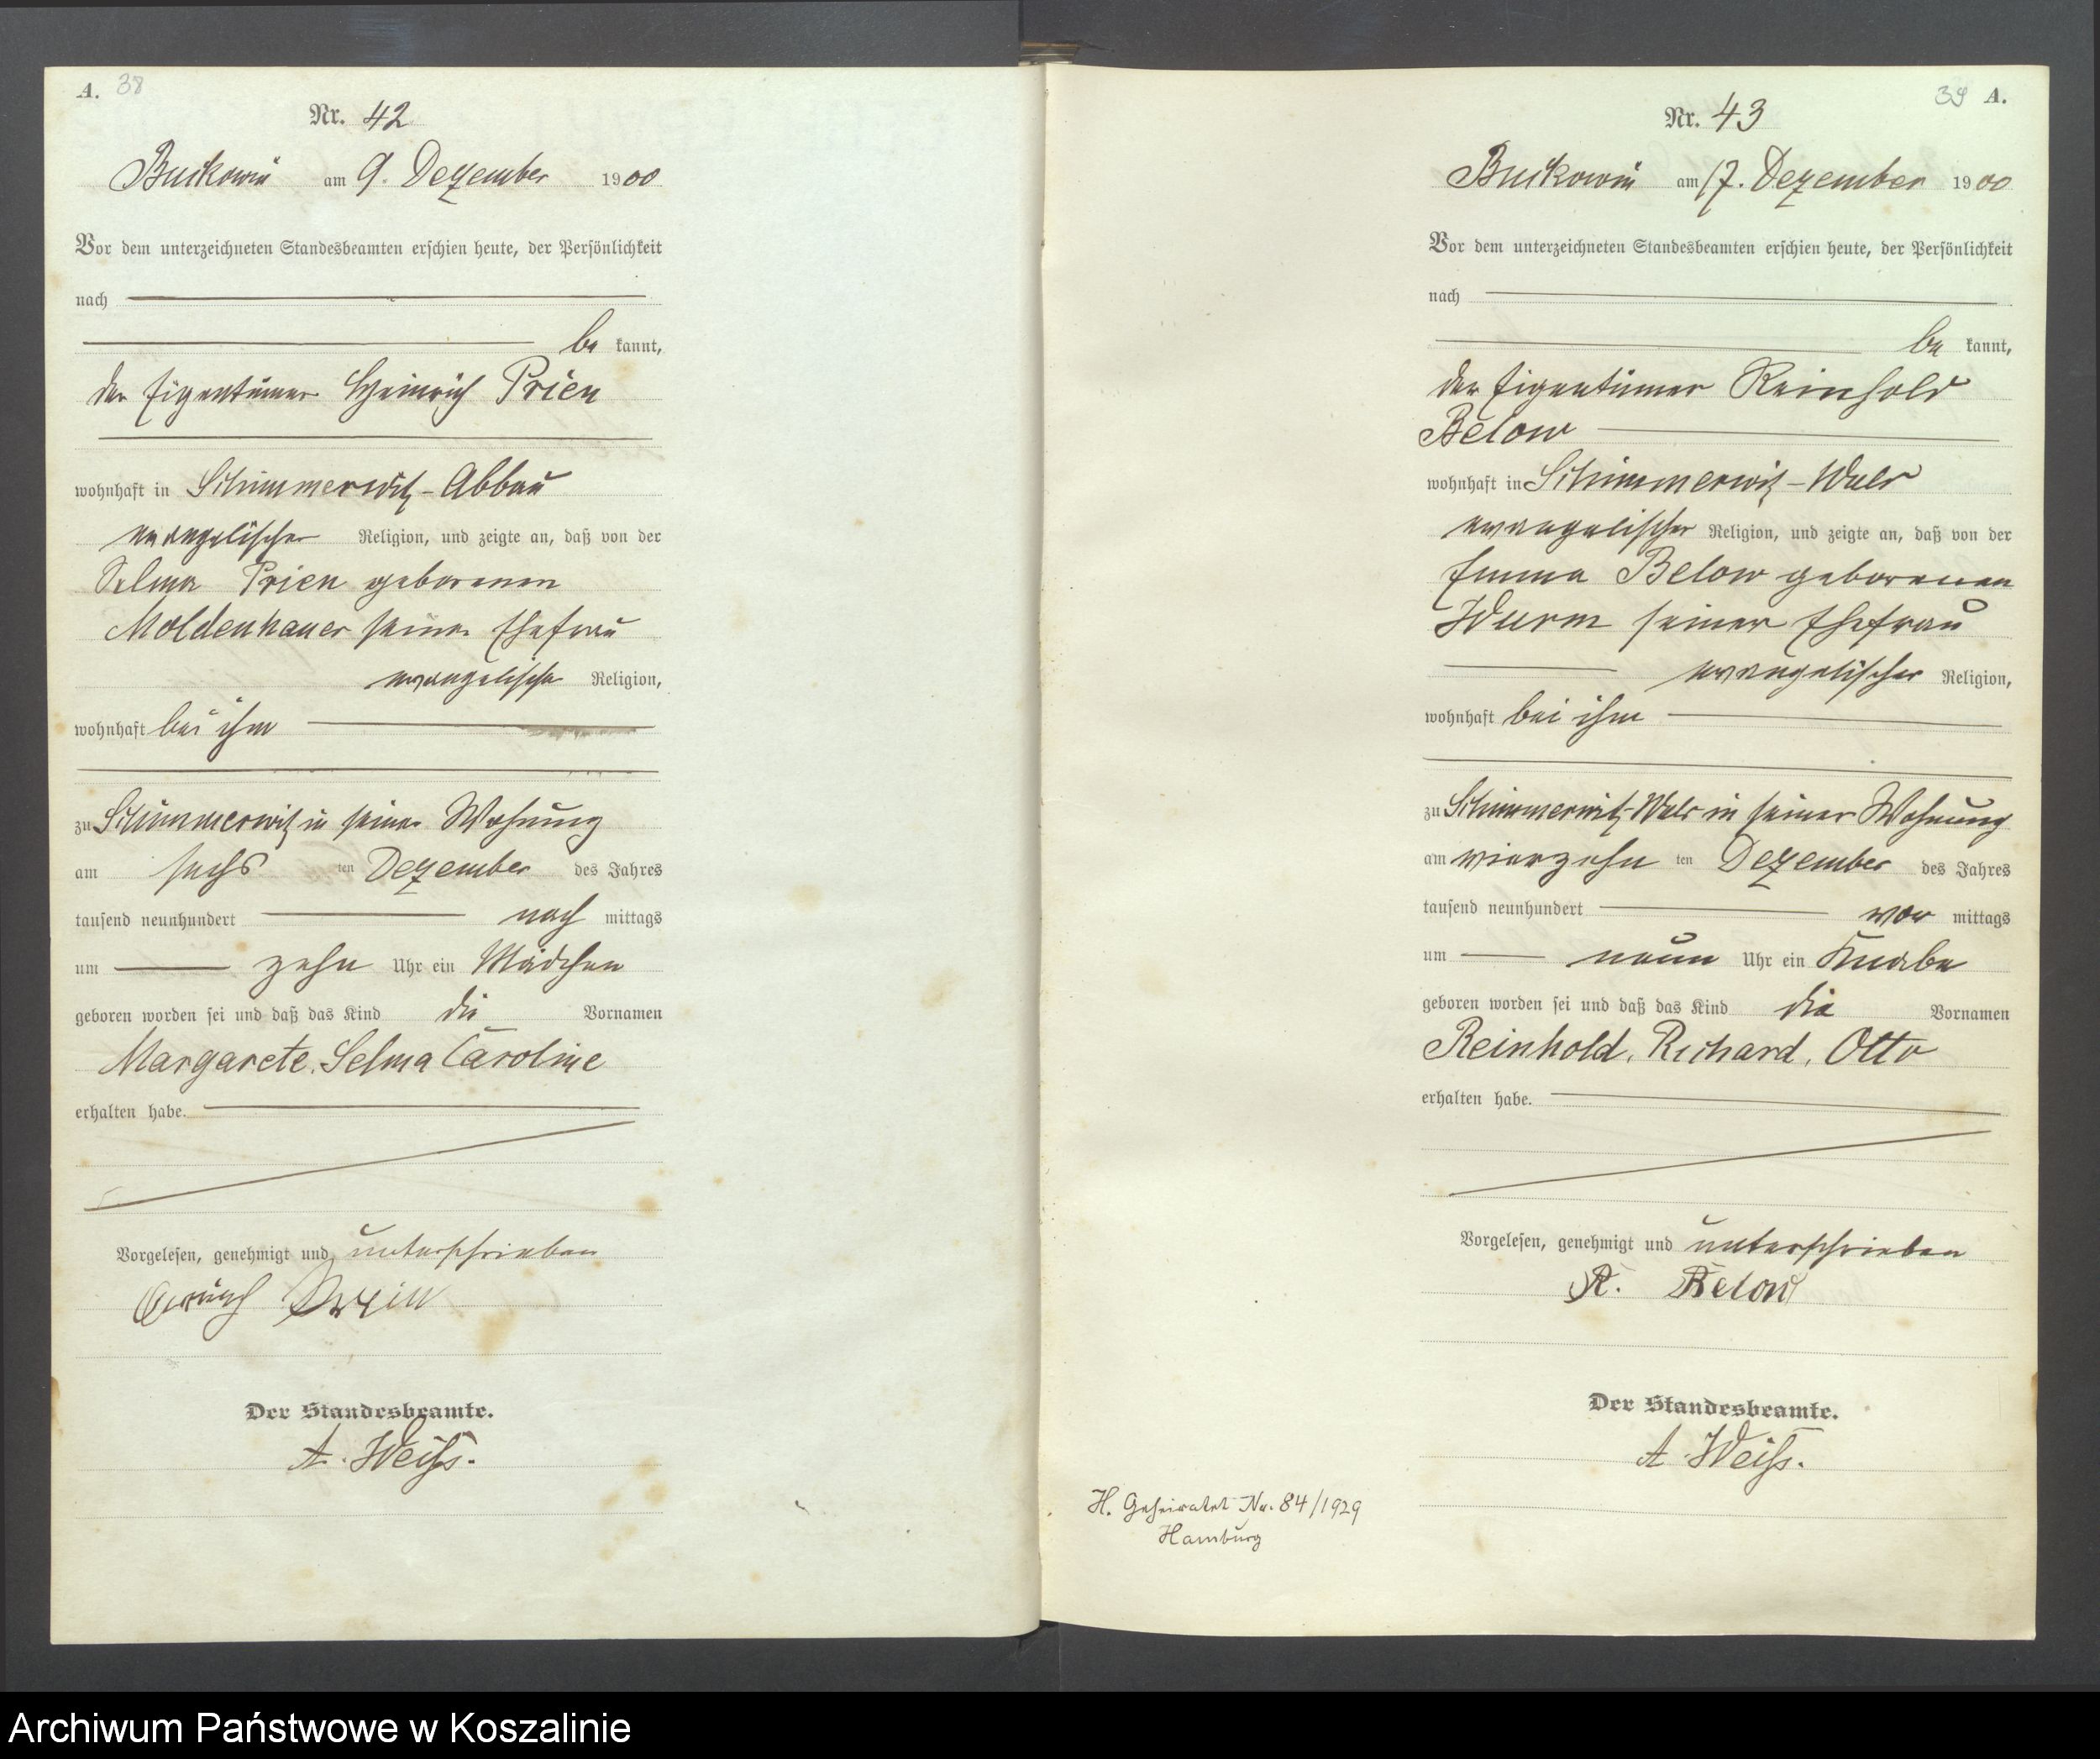 A. 38
Nr. 42
Buckowin am 9. Dezember 1900
Vor dem unterzeichneten Standesbeamten erschien heute, der Persönlichkeit
nach
be kannt,
der Eigentümer Heinrich Prien
wohnhaft in Schimmerwitz-Abbau
evangelischer Religion, und zeigte an, daß von der
Selma Prien geborenen
Moldenhauer seiner Ehefrau
evangelischer Religion,
wohnhaft bei ihm
zu Schimmerwitz in seiner Wohnung
am sechs ten Dezember des Jahres
tausend neunhundert nach mittags
um zehn Uhr ein Mädchen
geboren worden sei und daß das Kind die Vornamen
Margarete, Selma Caroline
erhalten habe.
Vorgelesen, genehmigt und unterschrieben
Der Standesbeamte.
A. Weiß.
39 A.
Nr. 43
Buckowin am 17. Dezember 1900
Vor dem unterzeichneten Standesbeamten erschien heute, der Persönlichkeit
nach
be kannt,
der Eigentümer Reinhold
Below
wohnhaft in Schimmerwitz-Wald
evangelischer Religion, und zeigte an, daß von der
Emma Below geborenen
Wurm seiner Ehefrau
evangelischer Religion,
wohnhaft bei ihm
zu Schimmerwitz-Wald in seiner Wohnung
am vierzehn ten Dezember des Jahres
tausend neunhundert vor mittags
um neun Uhr ein Knabe
geboren worden sei und daß das Kind die Vornamen
Reinhold, Richard, Otto
erhalten habe.
Vorgelesen, genehmigt und unterschrieben
R. Below
Der Standesbeamte.
A. Weiß.
H. Geheiratet Nr. 84/1929
Hamburg
Archiwum Państwowe w Koszalinie